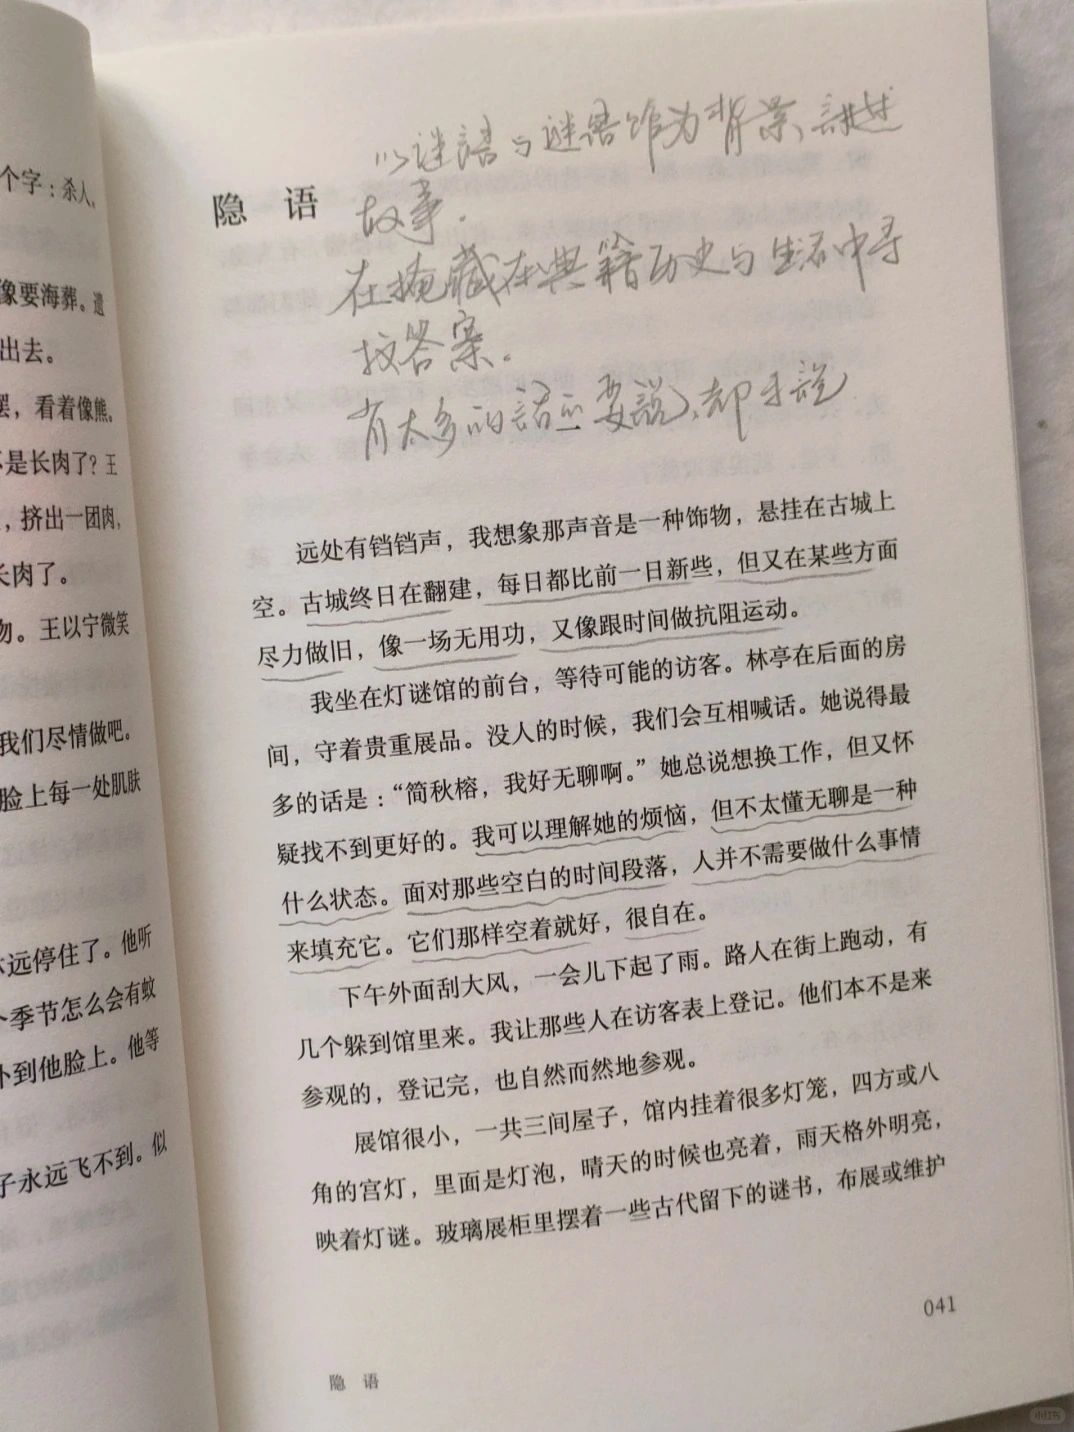 个字：杀人，
像要海葬。遗
出去。
罢，看着像熊。
不是长肉了？王
，挤出一团肉，
长肉了。
物。王以宁微笑
我们尽情做吧。
脸上每一处肌肤
永远停住了。他听
个季节怎么会有蚊
扑到他脸上。他等
子永远飞不到。似
以谜語与谜语馆为背景，讲述
隐 语
故事.
在掩藏在典籍历史与生活中寻
找答案.
有太多的話要説，却
远处有铛铛声，我想象那声音是一种饰物，悬挂在古城上
空。古城终日在翻建，每日都比前一日新些，但又在某些方面
尽力做旧，像一场无用功，又像跟时间做抗阻运动。
我坐在灯谜馆的前台，等待可能的访客。林亭在后面的房
间，守着贵重展品。没人的时候，我们会互相喊话。她说得最
多的话是：“简秋榕，我好无聊啊。”她总说想换工作，但又怀
疑找不到更好的。我可以理解她的烦恼，但不太懂无聊是一种
什么状态。面对那些空白的时间段落，人并不需要做什么事情
来填充它。它们那样空着就好，很自在。
下午外面刮大风，一会儿下起了雨。路人在街上跑动，有
几个躲到馆里来。我让那些人在访客表上登记。他们本不是来
参观的，登记完，也自然而然地参观。
展馆很小，一共三间屋子，馆内挂着很多灯笼，四方或八
角的宫灯，里面是灯泡，晴天的时候也亮着，雨天格外明亮，
映着灯谜。玻璃展柜里摆着一些古代留下的谜书，布展或维护
041
隐 语
小红书